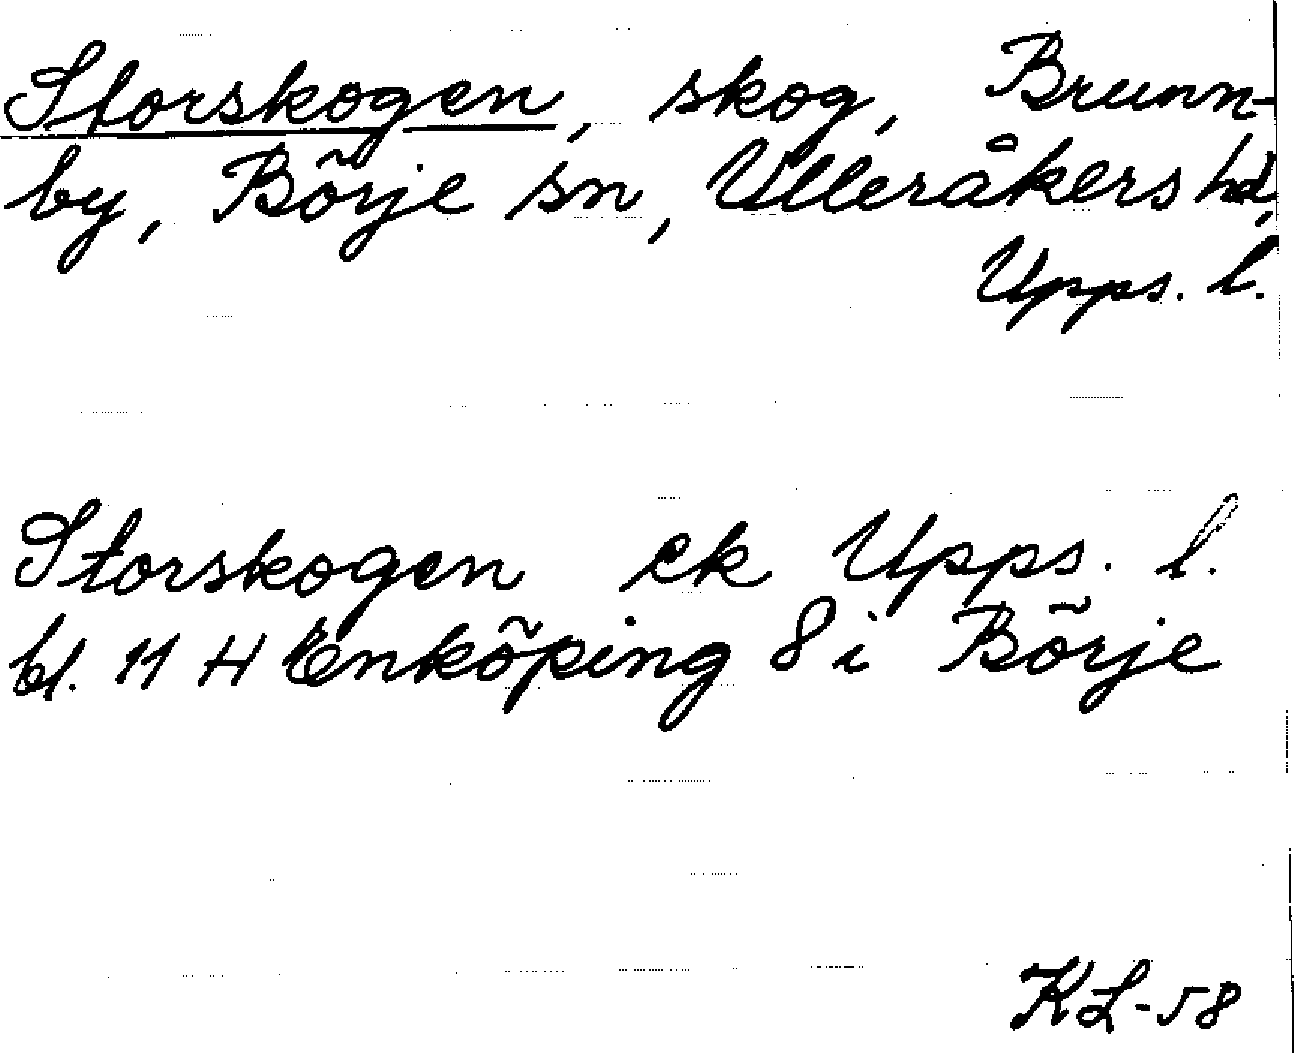 Storskogen, skog, Brunn-
by, Börje sn, Ulleråkers hd,
Upps. l.
Storskogen ek Upps. l.
bl. 11 H Enköping 8 i Börje
KL-58